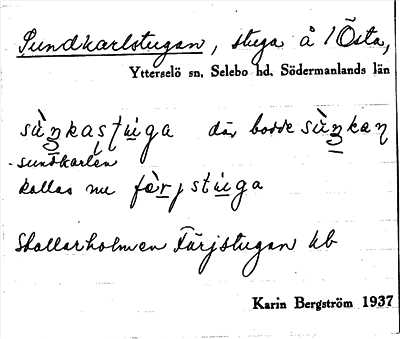 Sundkarlstugan, stuga å 1 Östa,
Ytterselö sn, Selebo hd, Södermanlands län
sùn̥kaṣṭu̲i̲ga där bodde sùn̥kaṇ
sundkarlen
kallas nu fær̀jstu̲i̲ga
Stallarholmen Färjstugan kb
Karin Bergström 1937